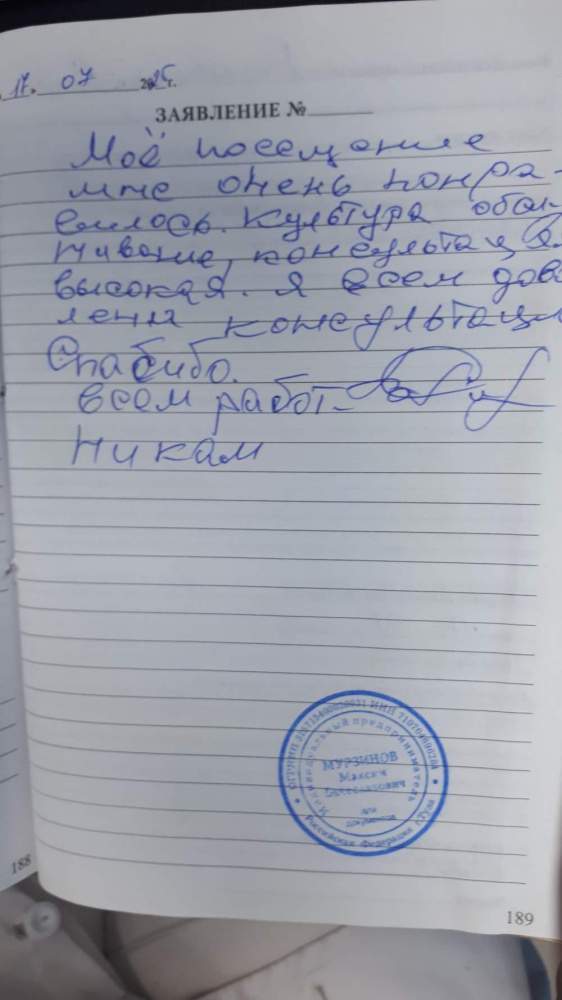 17. 07 2025 г.
ЗАЯВЛЕНИЕ №
Моё посещение
мне очень понра-
вилось. Культура
живание, консультац
высокая. Я всем дово
лена консультаци
Спасибо.
всем работ-
никам
МУРЗИНОВ
Максим
Индивидуальный предприниматель
для
документов
Российская Федерация г.Тула
188
189